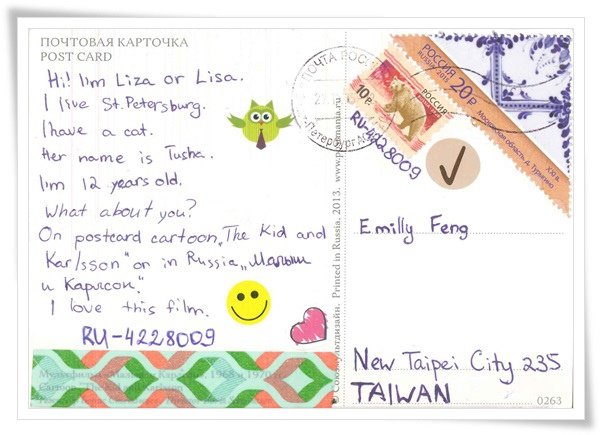 ПОЧТОВАЯ КАРТОЧКА
POST CARD
Hi! I'm Liza or Lisa.
I live St. Petersburg.
I have a cat.
Her name is Tusha.
I'm 12 years old.
What about you?
On postcard cartoon „The Kid and
Karlsson" or in Russia „Малыш
и Карлсон".
I love this film.
RU-4228009
ПОЧТА РОССИИ
РОССИЯ
RUSSIA
20 Р
Московская область, д. Туриново
XXI в.
РОССИЯ
10 р.
RU-4228009
Emilly Feng
New Taipei City 235
TAIWAN
Printed in Russia, 2013.
0263